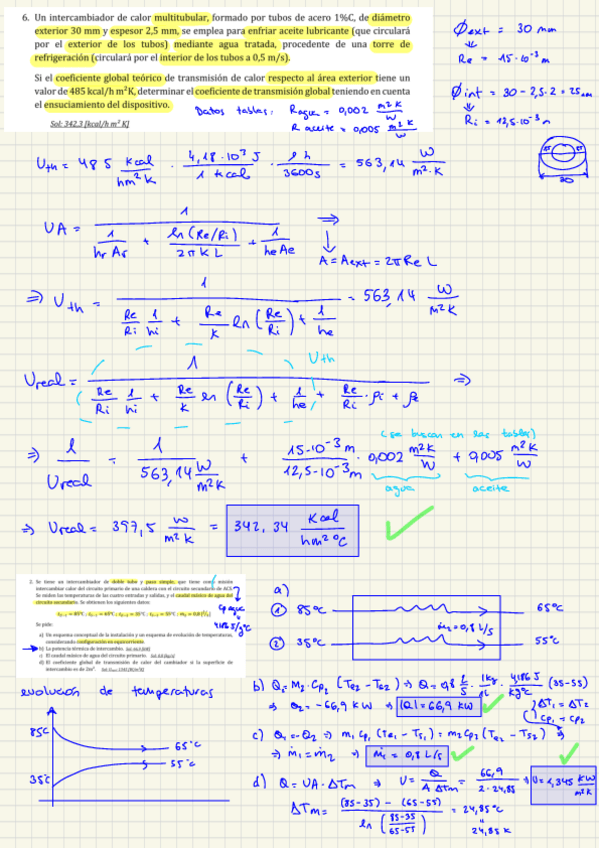 6. Un intercambiador de calor multitubular, formado por tubos de acero 1%C, de diámetro
exterior 30 mm y espesor 2,5 mm, se emplea para enfriar aceite lubricante (que circulará
por el exterior de los tubos) mediante agua tratada, procedente de una torre de
refrigeración (circulará por el interior de los tubos a 0,5 m/s).
Si el coeficiente global teórico de transmisión de calor respecto al área exterior tiene un
valor de 485 kcal/h m²K, determinar el coeficiente de transmisión global teniendo en cuenta
el ensuciamiento del dispositivo.
Sol: 342,3 [kcal/h m² K]
Datos tablas: Ragua = 0,002 m²K/W
R aceite = 0,005 m²K/W
Øext = 30 mm
Re = 15·10⁻³ m
Øint = 30 - 2,5·2 = 25mm
Ri = 12,5·10⁻³ m
30
Uth = 485 Kcal/hm²K · 4,18·10³ J/1 kcal · 1 h/3600s = 563,14 W/m²·K
UA = 1/(1/hr Ar + ln(Re/Ri)/2πKL + 1/he Ae) ⇒
A = Aext = 2π Re L
⇒ Uth = 1/(Re/Ri 1/hi + Re/K ln(Re/Ri) + 1/he) = 563,14 W/m²K
Uth
Ureal = 1/(Re/Ri 1/hi + Re/K ln(Re/Ri) + 1/he + Re/Ri · ρi + ρe) ⇒
(se buscan en las tablas)
⇒ 1/Ureal = 1/563,14 W/m²K + 15·10⁻³ m/12,5·10⁻³ m · 0,002 m²K/W + 0,005 m²K/W
agua aceite
⇒ Ureal = 397,5 W/m²K = 342,34 Kcal/hm²°C
2. Se tiene un intercambiador de doble tubo y paso simple, que tiene como misión
intercambiar calor del circuito primario de una caldera con el circuito secundario de ACS.
Se miden las temperaturas de las cuatro entradas y salidas, y el caudal másico de agua del
circuito secundario. Se obtienen los siguientes datos:
Se pide:
a) Un esquema conceptual de la instalación y un esquema de evolución de temperaturas,
considerando configuración en equicorriente.
b) La potencia térmica de intercambio.
c) El caudal másico de agua del circuito primario.
d) El coeficiente global de transmisión de calor del cambiador si la superficie de
intercambio es de 2m².
Cp agua
4186 J/kg°C
a)
① 85°C 65°C
ṁ2 = 0,8 L/s
② 35°C 55°C
evolución de temperaturas
85°C
65°C
55°C
35°C
b) Q2 = M2 · Cp2 (Te2 - Ts2) ⇒ Q = 0,8 L/s · 1kg/1L · 4186 J/kg°C (35-55)
⇒ Q2 = -66,9 KW ⇒ |Q| = 66,9 KW
c) Q1 = -Q2 ⇒ m1 Cp1 (Te1 - Ts1) = m2 Cp2 (Te2 - Ts2) ⇒
ΔT1 = ΔT2
Cp1 = Cp2
⇒ ṁ1 = ṁ2 ⇒ ṁ1 = 0,8 L/s
d) Q = UA · ΔTm ⇒ U = Q/A ΔTm = 66,9/2·24,85 ⇒ U = 1,345 KW/m²K
ΔTm = (85-35) - (65-55)/ln(85-35/65-55) = 24,85°C
24,85 K